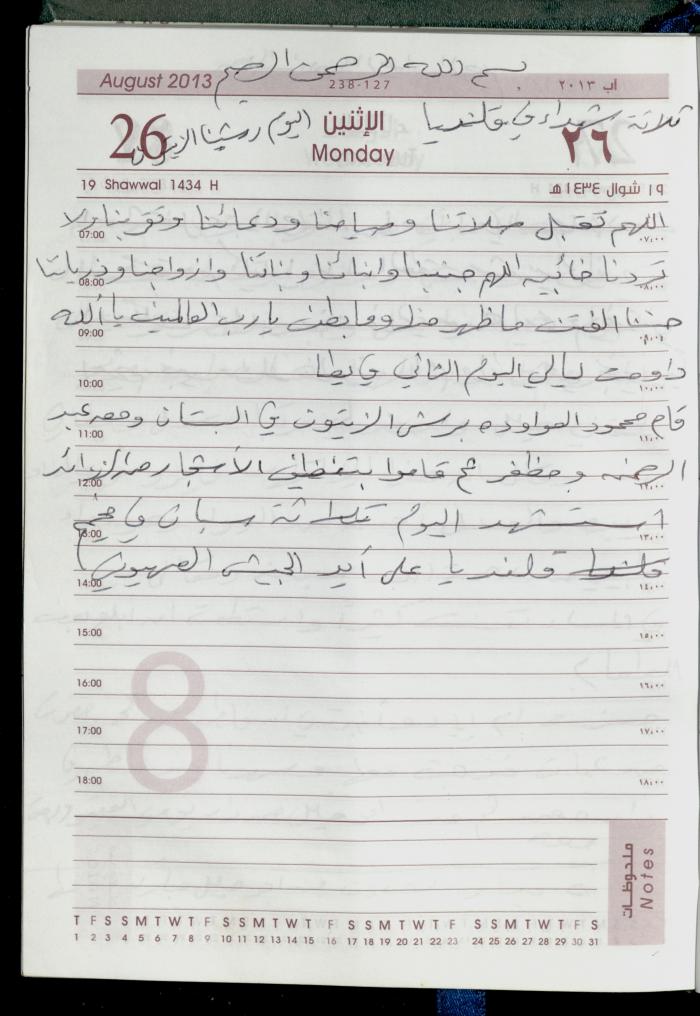 بسم الله الرحمن الرحيم
August 2013 238-127 آب ٢٠١٣
ثلاثة شهداء في قلنديا
26 الإثنين ٢٦
اليوم رشينا الزيتون
Monday
19 Shawwal 1434 H ١٩ شوال ١٤٣٤هـ
اللهم تقبل صلاتنا وصيامنا ودعائنا وتقربنا ولا
07:00 ٠٧:٠٠
تردنا خائبيه اللهم جنبنا وابنائنا وبناتنا وازواجنا وذرياتنا
08:00 ٠٨:٠٠
الفتن ما ظهر منها وما بطن يا رب العالمين يا الله
09:00 ٠٩:٠٠
داومت ليالي اليوم الثاني في يطا
10:00 ١٠:٠٠
قام محمود العواوده برش الزيتون في البستان ومعه عبد
11:00 ١١:٠٠
الرحمن ومظفر ثم قاموا بتنظيف الأشجار من الزوائد
12:00 ١٢:٠٠
استشهد اليوم ثلاثة شبان في مخيم
13:00 ١٣:٠٠
قلنديا على أيد الجيش الصهيوني
14:00 ١٤:٠٠
15:00 ١٥:٠٠
16:00 ١٦:٠٠
17:00 ١٧:٠٠
18:00 ١٨:٠٠
8
ملحوظات
Notes
T F S S M T W T F S S M T W T F S S M T W T F S S M T W T F S
1 2 3 4 5 6 7 8 9 10 11 12 13 14 15 16 17 18 19 20 21 22 23 24 25 26 27 28 29 30 31